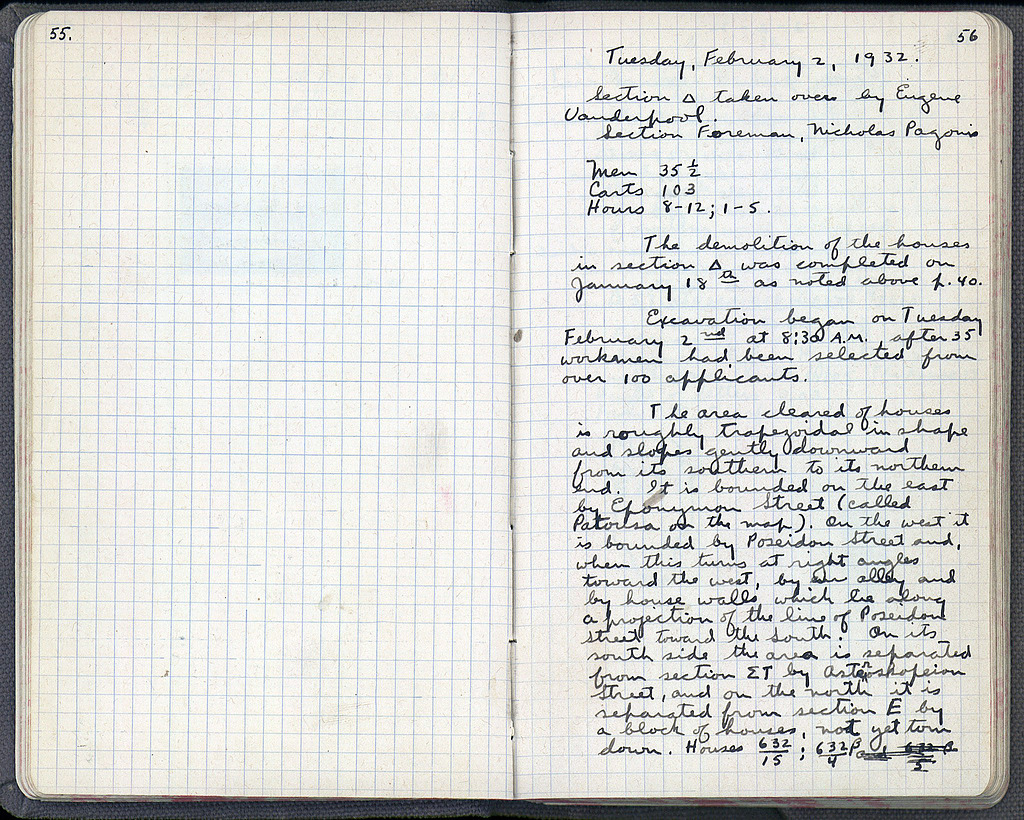 55.
56
Tuesday, February 2, 1932.
Section Δ taken over by Eugene
Vanderpool.
Section Foreman, Nicholas Pagonis
Men 35 ½
Carts 103
Hours 8-12; 1-5.
The demolition of the houses
in section Δ was completed on
January 18 th as noted above p. 40.
Excavation began on Tuesday
February 2 nd at 8:30 A.M., after 35
workmen had been selected from
over 100 applicants.
The area cleared of houses
is roughly trapezoidal in shape
and slopes gently downward
from its southern to its northern
end. It is bounded on the east
by Eponymon Street (called
Patousa on the map). On the west it
is bounded by Poseidon Street and,
when this turns at right angles
toward the west, by an alley and
by house walls which lie along
a projection of the line of Poseidon
Street toward the south. On its
south side the area is separated
from section ΣΤ by Asteroskopeion
Street, and on the north it is
separated from section E by
a block of houses, not yet torn
down. Houses 632/15; 632β/4